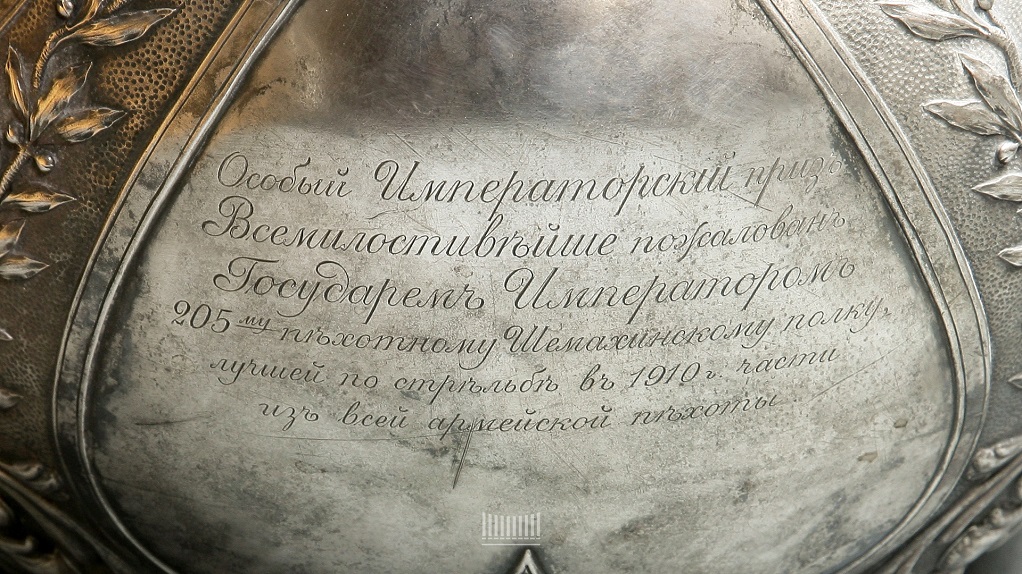 Особый Императорскій призъ
Всемилостивѣйше пожалованъ
Государемъ Императоромъ
205му пѣхотному Шемахинскому полку,
лучшей по стрѣльбѣ въ 1910 г. части
изъ всей армейской пѣхоты.